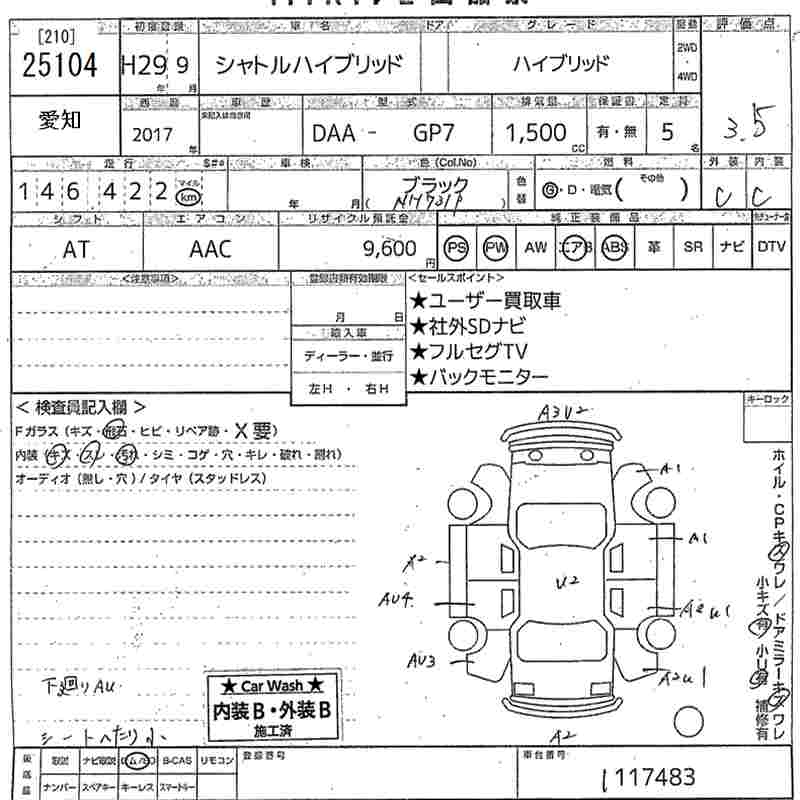 [210]
25104
初度登録 車名 ドア グレード 駆動 評価点
H29 9 シャトルハイブリッド ハイブリッド
年 月
2WD
・
4WD
愛知
車歴 型式 排気量 保証書 定員
2017 年 DAA - GP7 1,500 CC 有・無 5 名
3.5
走行 車検 色(Col.No) 燃料 外装 内装
146 422 マイル km
年 月
ブラック
( NH731P )
色替
G・D・電気( その他 )
C C
シフト エアコン リサイクル預託金 純正装備品
AT AAC 9,600 円 PS PW AW エアB ABS 革 SR ナビ DTV
<注意事項>
<セールスポイント>
月 日
輸入車
ディーラー・並行
左H ・ 右H
★ユーザー買取車
★社外SDナビ
★フルセグTV
★バックモニター
< 検査員記入欄 >
キーロック
Fガラス(キズ・飛石・ヒビ・リペア跡・X要)
内装(キズ・スレ・汚れ・シミ・コゲ・穴・キレ・破れ・割れ)
オーディオ(無し・穴)/タイヤ(スタッドレス)
A3U2
A1
A1
A2
U2
AU4
A2U1
AU3
A2U1
A2
ホイル・CPキズワレ/ドアミラーキズワレ
小キズ有 小U有 補修有
下廻りAU
シートへたり小
★ Car Wash ★
内装B・外装B
施工済
B-CAS リモコン
ナンバー スペアキー キーレス スマートキー
登録番号
車台番号
1117483